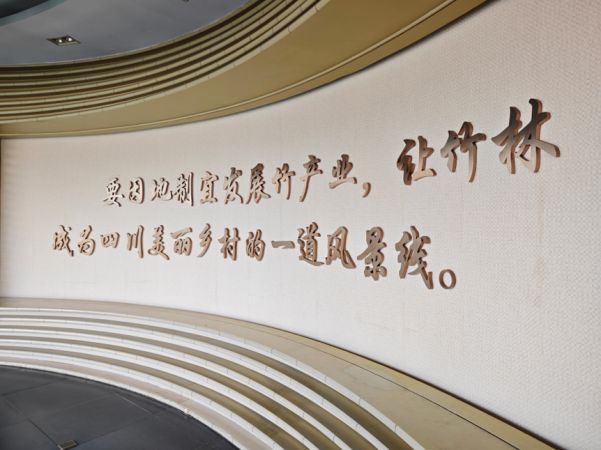 要因地制宜发展竹产业，让竹林
成为四川美丽乡村的一道风景线。